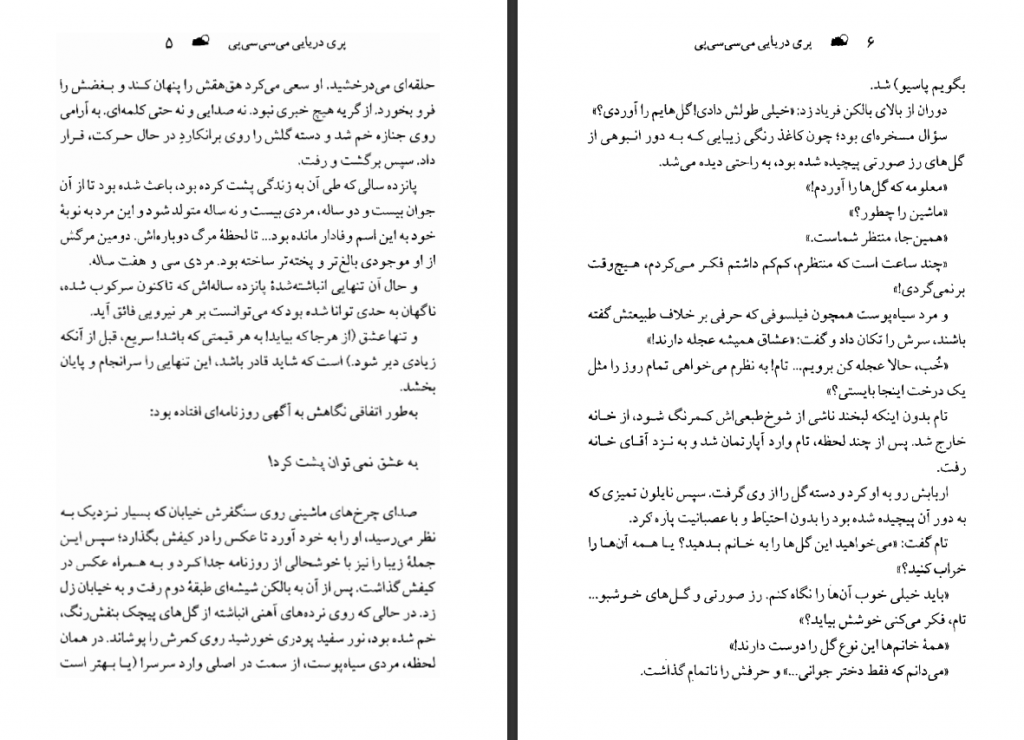 پری دریایی می‌سی‌سی‌پی ۵
حلقه‌ای می‌درخشید. او سعی می‌کرد هق‌هقش را پنهان کند و بغضش را
فرو بخورد. از گریه هیچ خبری نبود. نه صدایی و نه حتی کلمه‌ای. به آرامی
روی جنازه خم شد و دسته گلش را روی برانکاردِ در حال حرکت، قرار
داد. سپس برگشت و رفت.
پانزده سالی که طی آن به زندگی پشت کرده بود، باعث شده بود تا از آن
جوان بیست و دو ساله، مردی بیست و نه ساله متولد شود و این مرد به نوبهٔ
خود به این اسم وفادار مانده بود... تا لحظهٔ مرگ دوباره‌اش. دومین مرگش
از او موجودی بالغ‌تر و پخته‌تر ساخته بود. مردی سی و هفت ساله.
و حال آن تنهایی انباشته‌شدهٔ پانزده ساله‌اش که تاکنون سرکوب شده،
ناگهان به حدی توانا شده بود که می‌توانست بر هر نیرویی فائق آید.
و تنها عشق (از هرجا که بیاید! به هر قیمتی که باشد! سریع، قبل از آنکه
زیادی دیر شود.) است که شاید قادر باشد، این تنهایی را سرانجام و پایان
بخشد.
به‌طور اتفاقی نگاهش به آگهی روزنامه‌ای افتاده بود:
به عشق نمی‌توان پشت کرد!
صدای چرخ‌های ماشینی روی سنگفرش خیابان که بسیار نزدیک به
نظر می‌رسید، او را به خود آورد تا عکس را در کیفش بگذارد؛ سپس این
جملهٔ زیبا را نیز با خوشحالی از روزنامه جدا کرد و به همراه عکس در
کیفش گذاشت. پس از آن به بالکن شیشه‌ای طبقهٔ دوم رفت و به خیابان زل
زد. در حالی که روی نرده‌های آهنی انباشته از گل‌های پیچک بنفش‌رنگ،
خم شده بود، نور سفید پودری خورشید روی کمرش را پوشاند. در همان
لحظه، مردی سیاه‌پوست، از سمت در اصلی وارد سرسرا (یا بهتر است
۶ پری دریایی می‌سی‌سی‌پی
بگویم پاسیو) شد.
دوران از بالای بالکن فریاد زد: «خیلی طولش دادی! گل‌هایم را آوردی؟»
سؤال مسخره‌ای بود؛ چون کاغذ رنگی زیبایی که به دور انبوهی از
گل‌های رز صورتی پیچیده شده بود، به راحتی دیده می‌شد.
«معلومه که گل‌ها را آوردم!»
«ماشین را چطور؟»
«همین‌جا، منتظر شماست.»
«چند ساعت است که منتظرم، کم‌کم داشتم فکر می‌کردم، هیچ‌وقت
برنمی‌گردی!»
و مرد سیاه‌پوست همچون فیلسوفی که حرفی بر خلاف طبیعتش گفته
باشند، سرش را تکان داد و گفت: «عشاق همیشه عجله دارند!»
«خُب، حالا عجله کن برویم... تام! به نظرم می‌خواهی تمام روز را مثل
یک درخت اینجا بایستی؟»
تام بدون اینکه لبخند ناشی از شوخ‌طبعی‌اش کمرنگ شود، از خانه
خارج شد. پس از چند لحظه، تام وارد آپارتمان شد و به نزد آقای خانه
رفت.
اربابش رو به او کرد و دسته گل را از وی گرفت. سپس نایلون تمیزی که
به دور آن پیچیده شده بود را بدون احتیاط و با عصبانیت پاره کرد.
تام گفت: «می‌خواهید این گل‌ها را به خانم بدهید؟ یا همه آن‌ها را
خراب کنید؟»
«باید خیلی خوب آن‌ها را نگاه کنم. رز صورتی و گل‌های خوشبو...
تام، فکر می‌کنی خوشش بیاید؟»
«همهٔ خانم‌ها این نوع گل را دوست دارند!»
«می‌دانم که فقط دختر جوانی...» و حرفش را ناتمام گذاشت.